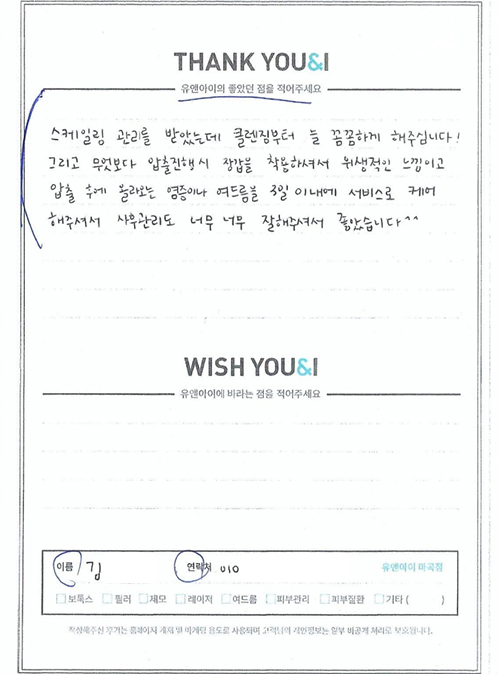 THANK YOU&I
유앤아이의 좋았던 점을 적어주세요
스케일링 관리를 받았는데 클렌징부터 늘 꼼꼼하게 해주십니다!
그리고 무엇보다 압출진행시 장갑을 착용하셔서 위생적인 느낌이고
압출 후에 올라오는 염증이나 여드름을 3일 이내에 서비스로 케어
해주셔서 사후관리도 너무 너무 잘해주셔서 좋았습니다^^
WISH YOU&I
유앤아이에 바라는 점을 적어주세요
이름 김 연락처 010 유앤아이 마곡점
보톡스 필러 제모 레이저 여드름 피부관리 피부질환 기타 ( )
작성해주신 후기는 홈페이지 게재 및 마케팅 용도로 사용되며 고객님의 개인정보는 일부 비공개 처리로 보호됩니다.